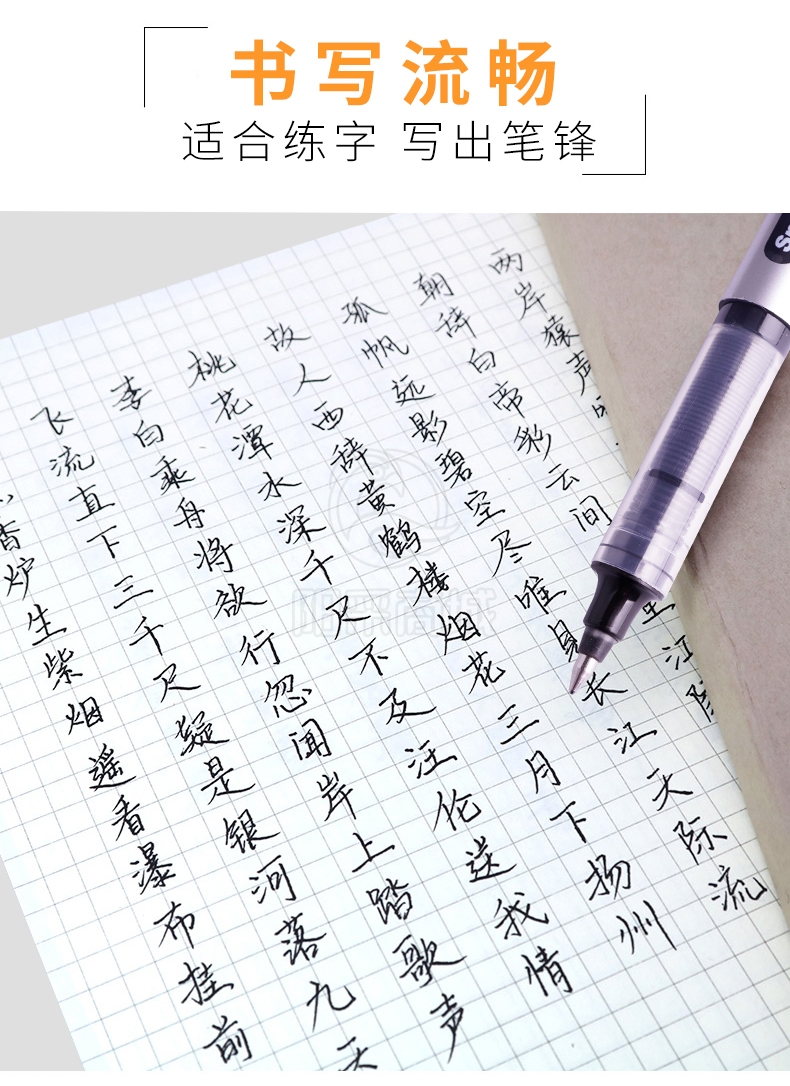 书写流畅
适合练字 写出笔锋
两岸猿声
朝辞白帝彩云间 江
孤帆远影碧空尽唯見长江天际流
故人西辞黄鹤楼烟花三月下扬州
桃花潭水深千尺不及汪伦送我情
李白乘舟将欲行忽闻岸上踏歌声
飞流直下三千尺疑是银河落九天
香炉生紫烟遥看瀑布挂前